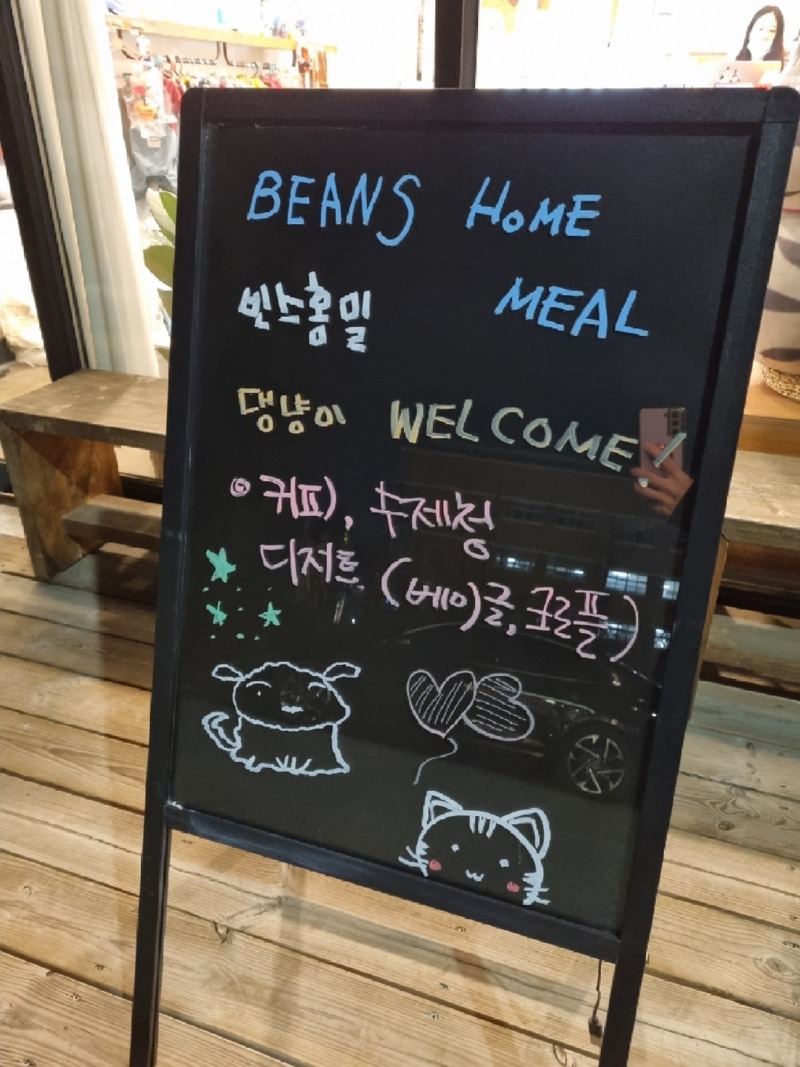 BEANS HOME
MEAL
빈스홈밀
댕냥이 WELCOME!
커피, 수제청
디저트 (베이글, 크로플)